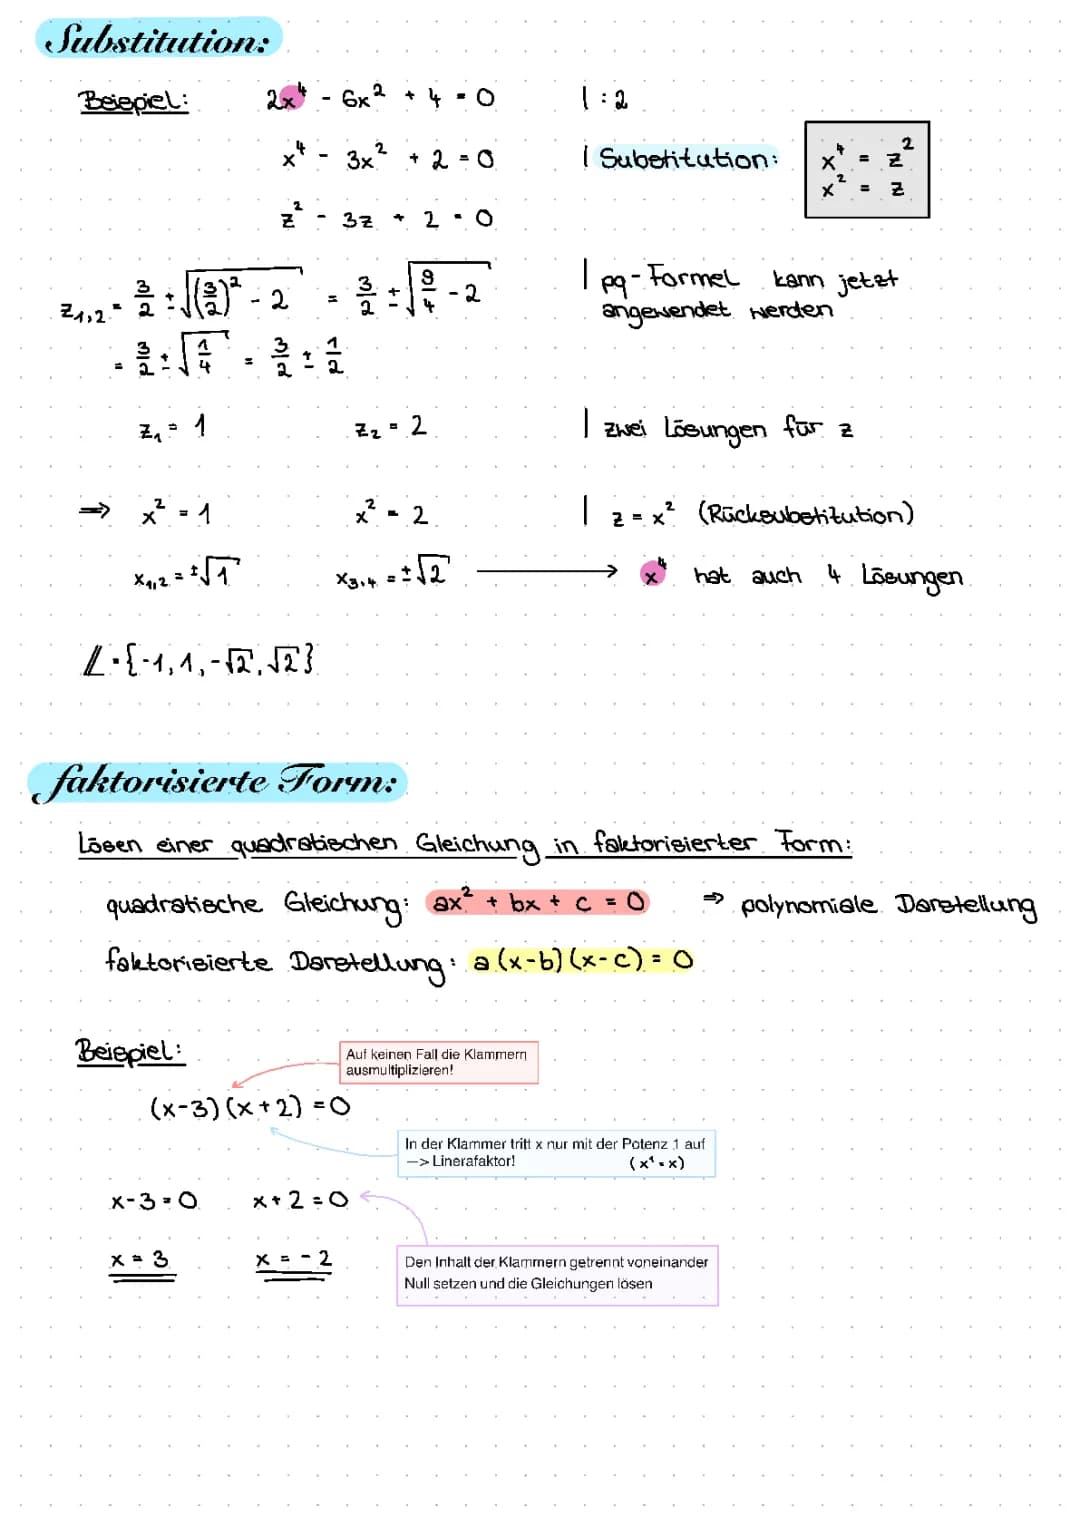 Substitution:
Beispiel: 2x⁴ - 6x² + 4 = 0 | : 2
x⁴ - 3x² + 2 = 0 | Substitution: x⁴ = z²
x² = z
z² - 3z + 2 = 0
z₁,₂ = 3/2 ± √((3/2)² - 2) = 3/2 ± √(9/4 - 2) | pq-Formel kann jetzt
angewendet werden
= 3/2 ± √(1/4) = 3/2 ± 1/2
z₁ = 1 z₂ = 2 | zwei Lösungen für z
⇒ x² = 1 x² = 2 | z = x² (Rücksubstitution)
x₁,₂ = ±√1 x₃,₄ = ±√2 ⟶ x⁴ hat auch 4 Lösungen
𝕃 = {-1, 1, -√2, √2}
faktorisierte Form:
Lösen einer quadratischen Gleichung in faktorisierter Form:
quadratische Gleichung: ax² + bx + c = 0 ⇒ polynomiale Darstellung
faktorisierte Darstellung: a(x-b)(x-c) = 0
Beispiel:
Auf keinen Fall die Klammern
ausmultiplizieren!
(x-3)(x+2) = 0
In der Klammer tritt x nur mit der Potenz 1 auf
—> Linerafaktor! (x¹ = x)
x-3 = 0 x+2 = 0
x = 3 x = -2
Den Inhalt der Klammern getrennt voneinander
Null setzen und die Gleichungen lösen